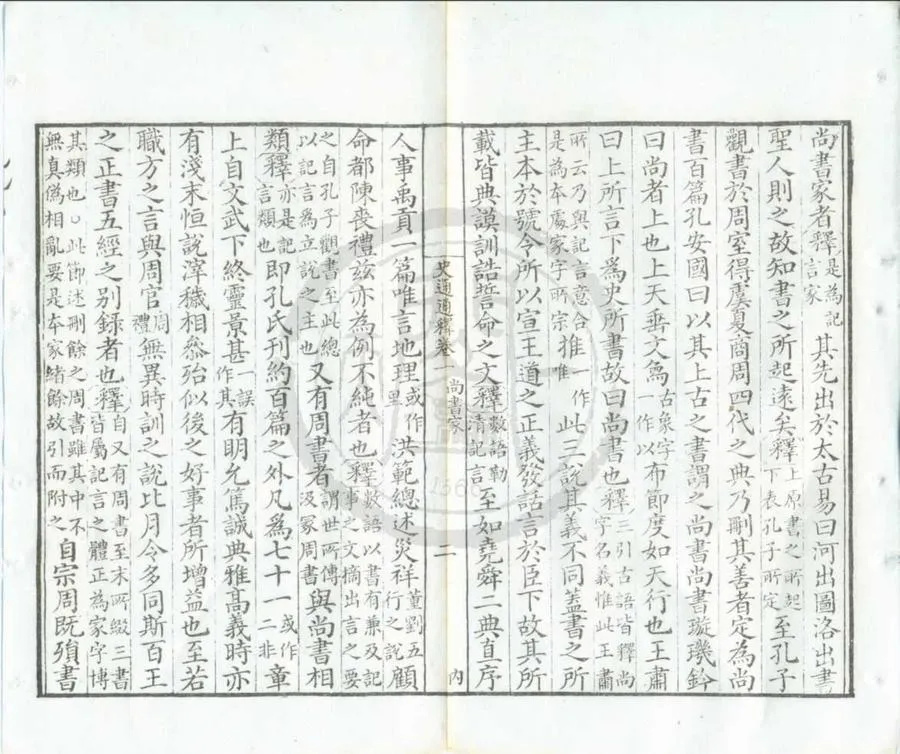 尚書家者釋是為記言家其先出於太古易曰河出圖洛出書
聖人則之故知書之所起遠矣釋上原書之所起下表孔子所定至孔子
觀書於周室得虞夏商周四代之典乃刪其善者定為尚
書百篇孔安國曰以其上古之書謂之尚書尚書璇璣鈐
曰尚者上也上天垂文爲古象字一作以布節度如天行也王肅
曰上所言下為史所書故曰尚書也釋三引古語皆釋尚字名義惟此王肅
所云乃與記言意合是為本處家字所宗推一作惟此三說其義不同蓋書之所
主本於號令所以宣王道之正義發話言於臣下故其所
載皆典謨訓誥誓命之文釋數語勒清記言至如堯舜二典直序
史通通釋卷一 尚書家 二 內
人事禹貢一篇唯言地理或作里洪範總述災祥董劉五行之說顧
命都陳喪禮茲亦為例不純者也釋數語以書有兼及記事之文摘出言之要
之自孔子觀書至此總以記言為立說之主也又有周書者謂世所傳汲冢周書與尚書相
類釋亦是記言類也即孔氏刊約百篇之外凡為七十一或作二非章
上自文武下終靈景甚一誤作其有明允篤誠典雅高義時亦
有淺末恒說滓穢相參殆似後之好事者所增益也至若
職方之言與周官周禮無異時訓之說比月令多同斯百王
之正書五經之別錄者也釋自又有周書至末所綴三書皆屬記言之體正為家字博
其類也○此節述刪餘之周書雖其中不無真偽相亂要是本家緒餘故引而附之自宗周既殞書